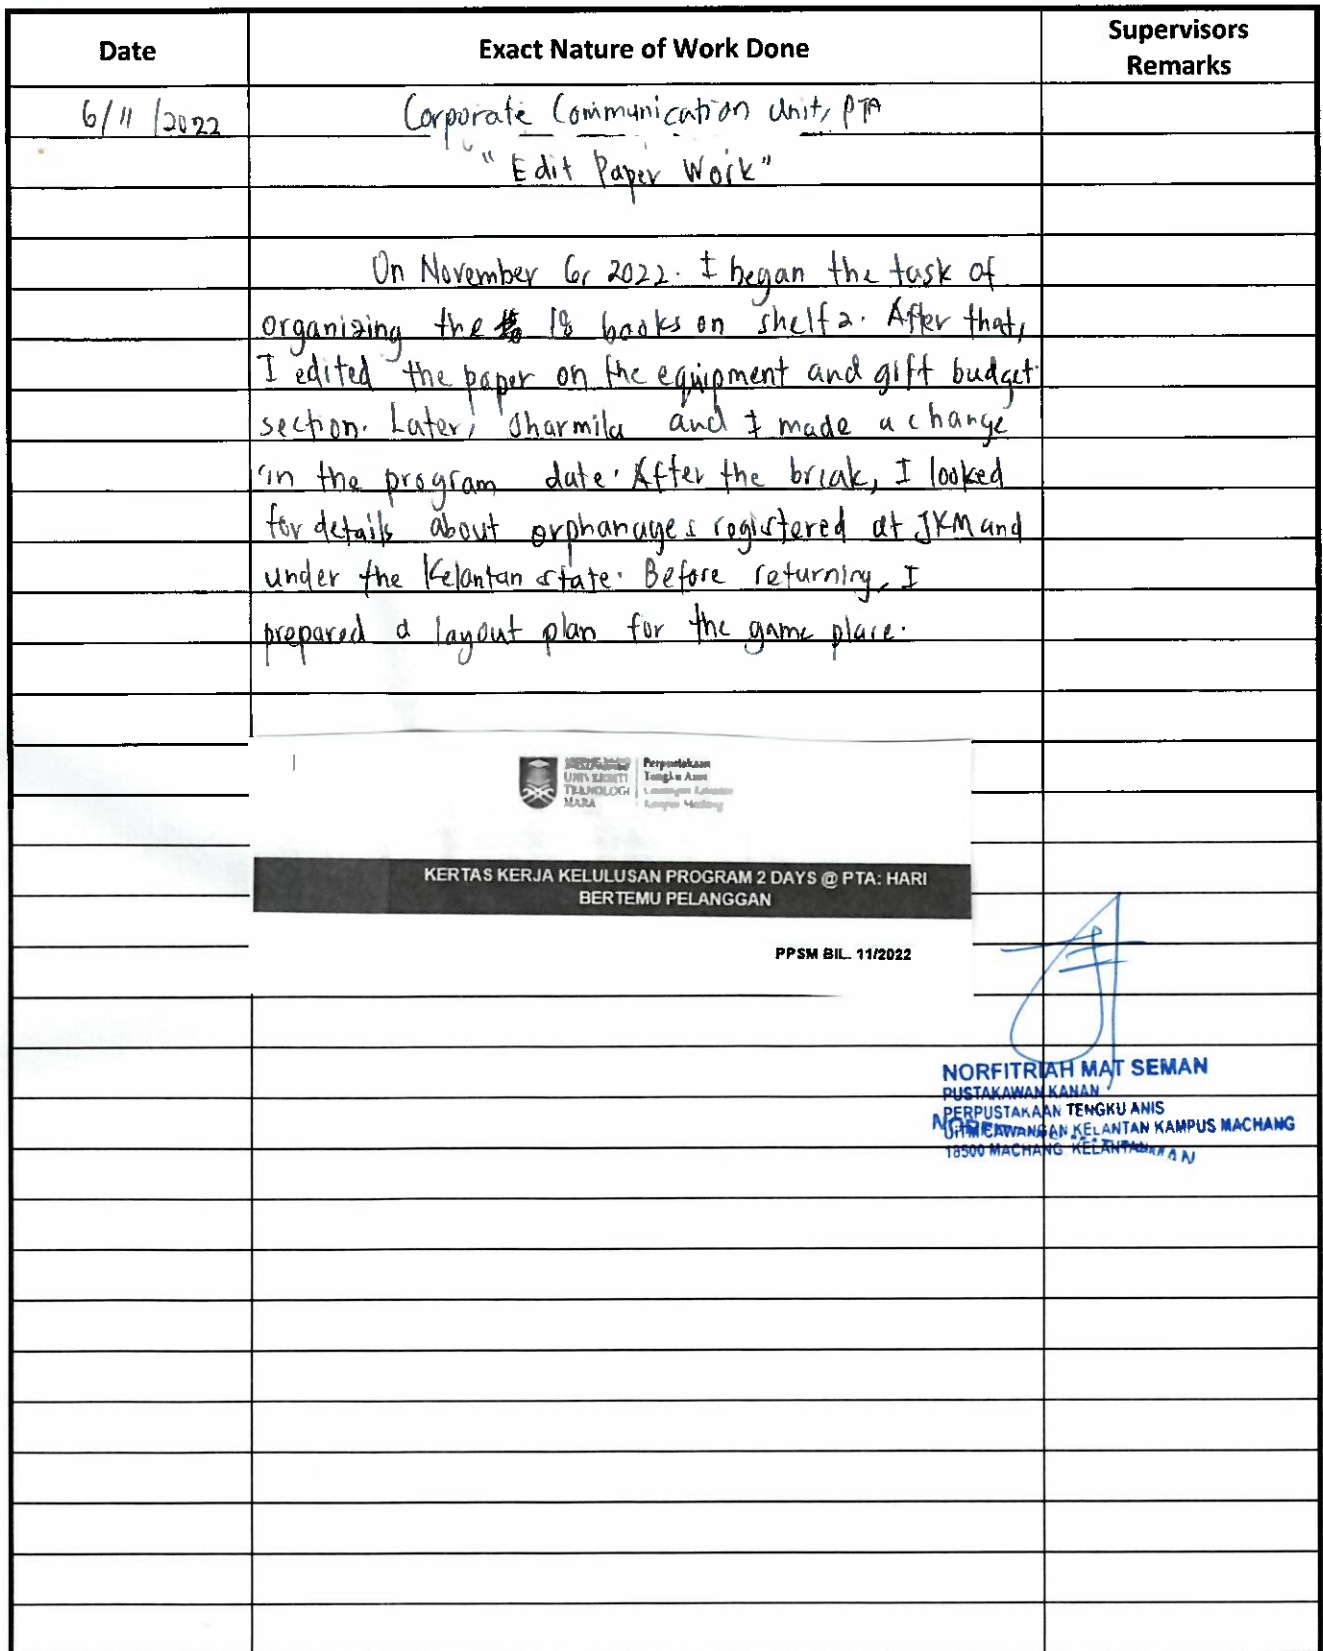 Date
Exact Nature of Work Done
Supervisors
Remarks
6/11/2022
Corporate Communication Unit, PTA
"Edit Paper Work"
On November 6, 2022. I began the task of
organizing the 18 books on shelf 2. After that,
I edited the paper on the equipment and gift budget
section. Later, Sharmila and I made a change
in the program date. After the break, I looked
for details about orphanages registered at JKM and
under the Kelantan state. Before returning, I
prepared a layout plan for the game place.
UNIVERSITI
TEKNOLOGI
MARA
Perpustakaan
Tengku Anis
Cawangan Kelantan
Kampus Machang
KERTAS KERJA KELULUSAN PROGRAM 2 DAYS @ PTA: HARI
BERTEMU PELANGGAN
PPSM BIL. 11/2022
NORFITRIAH MAT SEMAN
PUSTAKAWAN KANAN
PERPUSTAKAAN TENGKU ANIS
UITM CAWANGAN KELANTAN KAMPUS MACHANG
18500 MACHANG KELANTAN